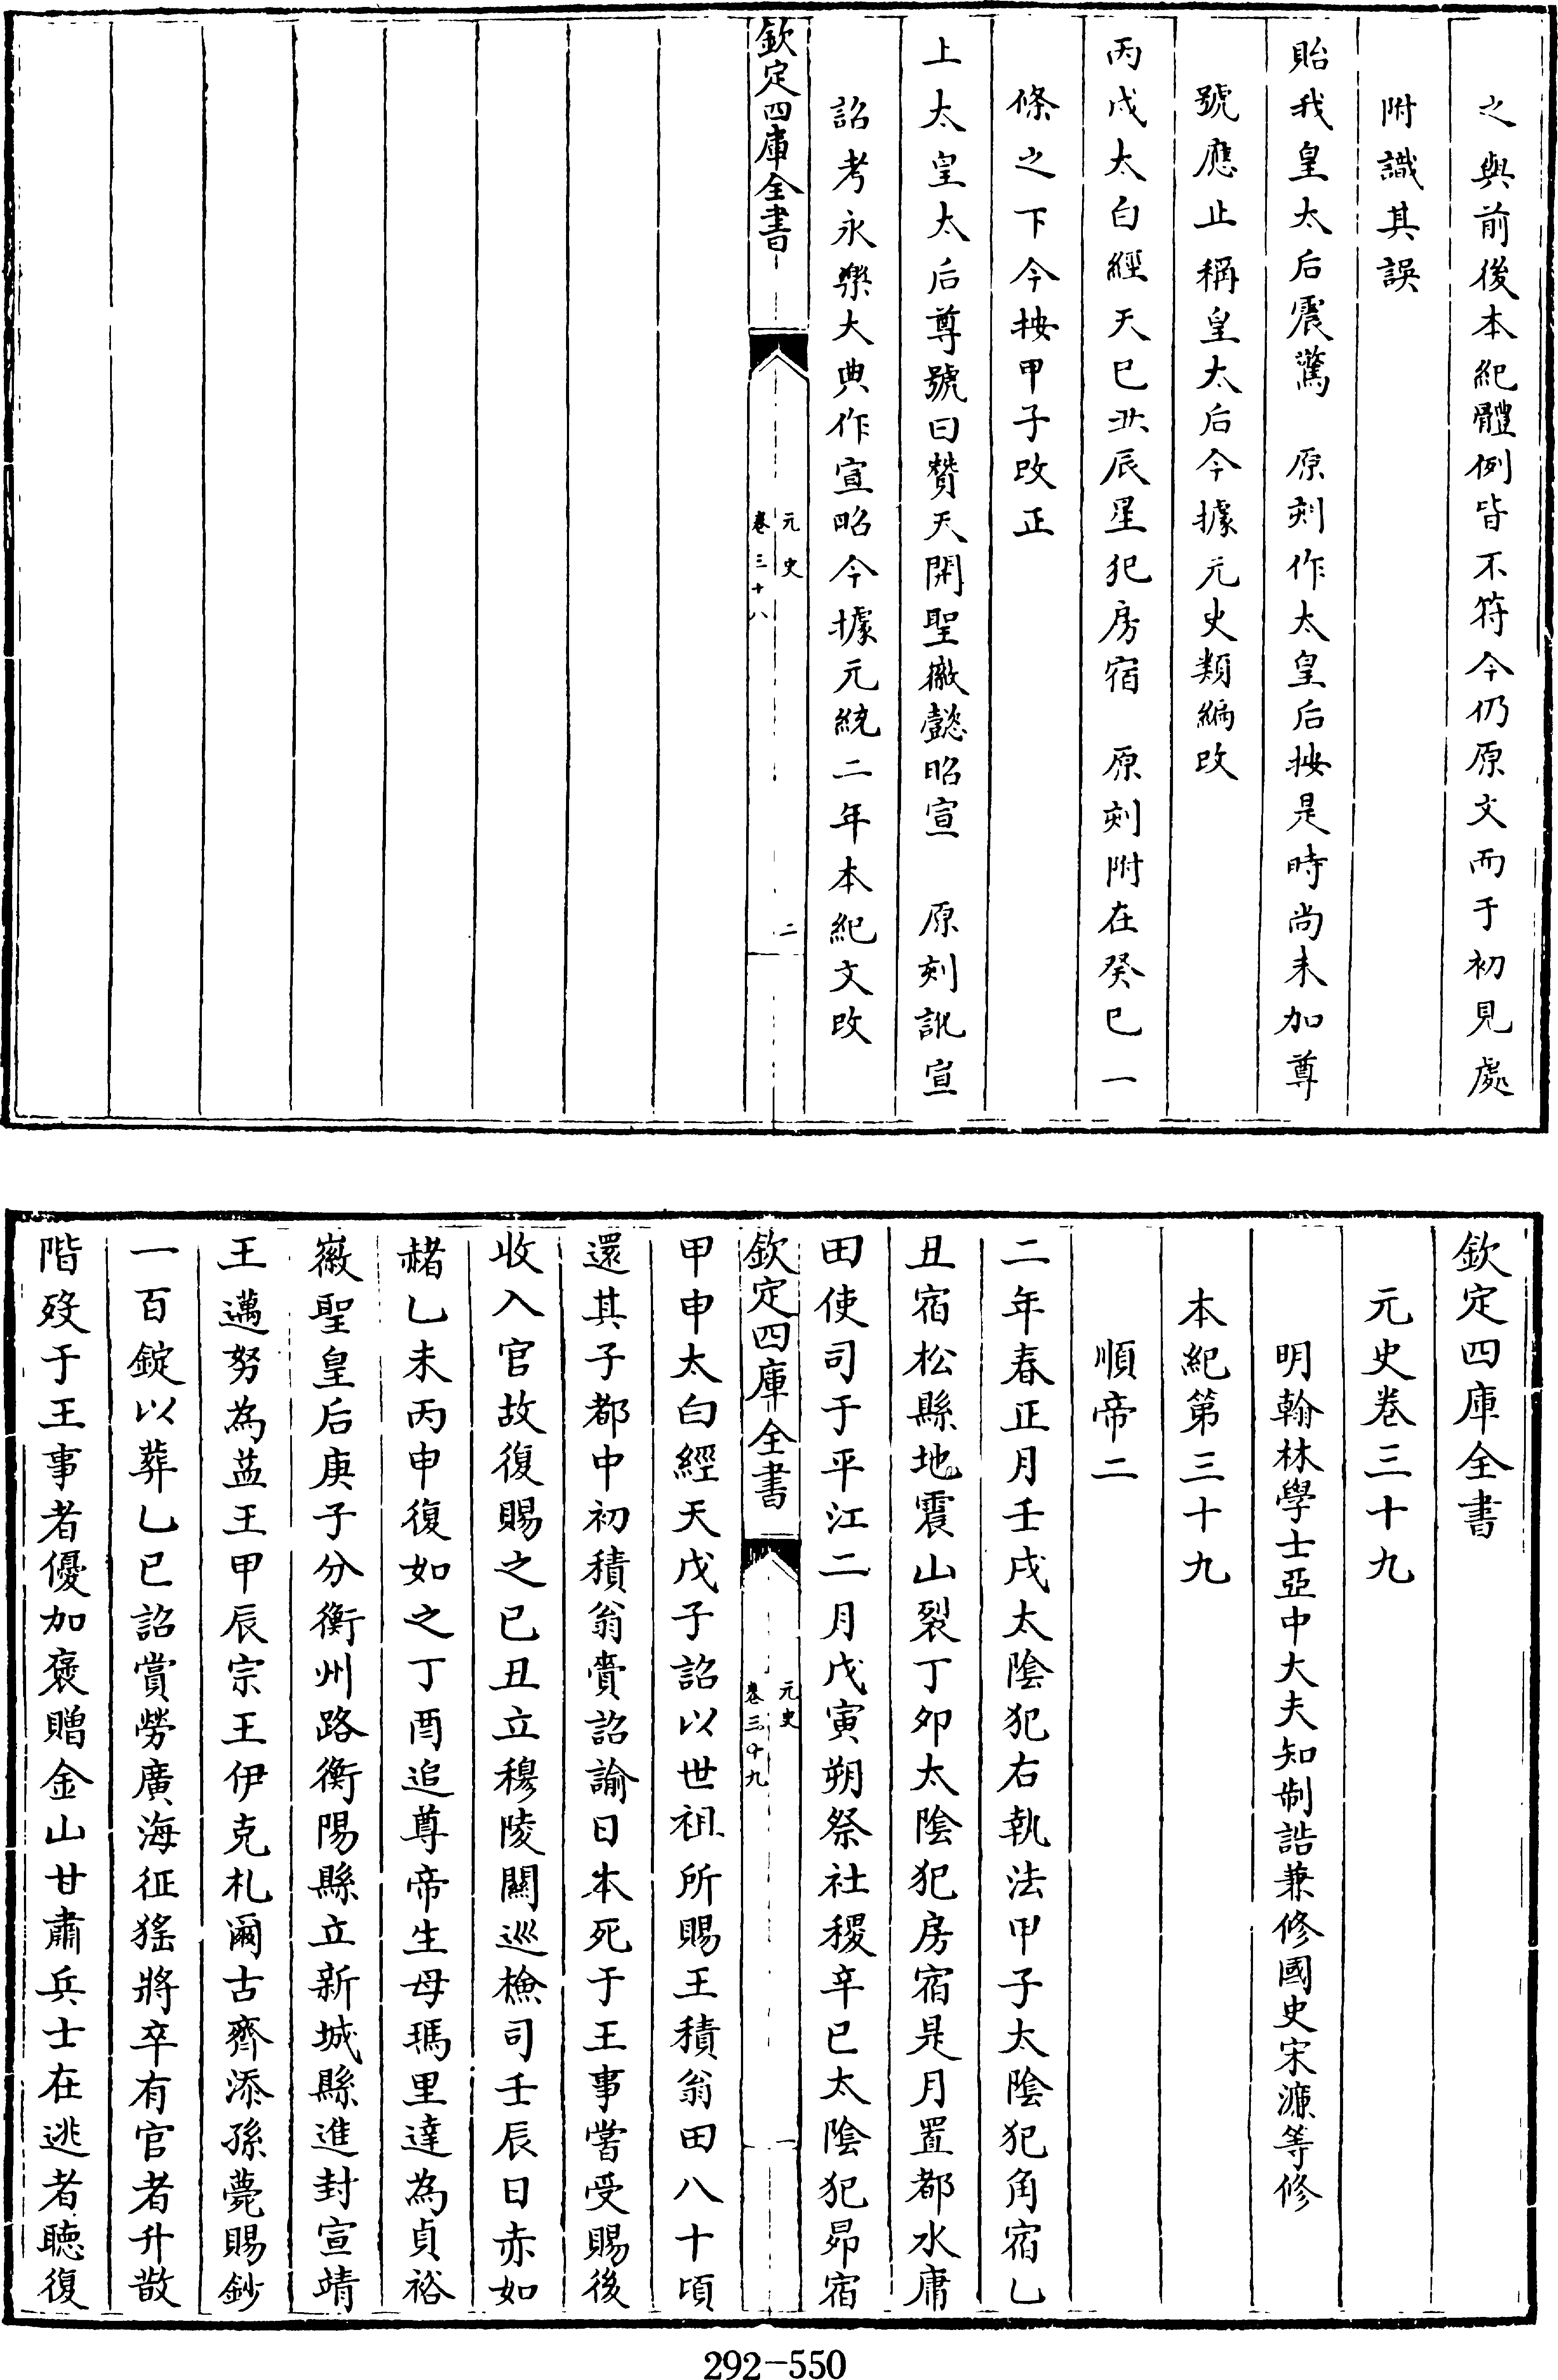 之與前後本紀體例皆不符今仍原文而于初見處
附識其誤
貽我皇太后震驚　原刻作太皇后按是時尚未加尊
號應止稱皇太后今據元史類編改
丙戌太白經天已丑辰星犯房宿　原刻附在癸巳一
條之下今按甲子改正
上太皇太后尊號曰贊天開聖徽懿昭宣　原刻訛宣
詔考永樂大典作宣昭今據元統二年本紀文改
欽定四庫全書
元史
卷三十八
二
欽定四庫全書
元史卷三十九
明翰林學士亞中大夫知制誥兼修國史宋濂等修
本紀第三十九
順帝二
二年春正月壬戌太陰犯右執法甲子太陰犯角宿乙
丑宿松縣地震山裂丁卯太陰犯房宿是月置都水庸
田使司于平江二月戊寅朔祭社稷辛巳太陰犯昴宿
欽定四庫全書
元史
卷三十九
一
甲申太白經天戊子詔以世祖所賜王積翁田八十頃
還其子都中初積翁賫詔諭日本死于王事嘗受賜後
收入官故復賜之已丑立穆陵關巡檢司壬辰日赤如
赭乙未丙申復如之丁酉追尊帝生母瑪里達為貞裕
徽聖皇后庚子分衡州路衡陽縣立新城縣進封宣靖
王邁努為益王甲辰宗王伊克札爾古齊添孫薨賜鈔
一百錠以葬乙巳詔賞勞廣海征猺將卒有官者升散
階歿于王事者優加褒贈金山甘肅兵士在逃者聽復
292-550